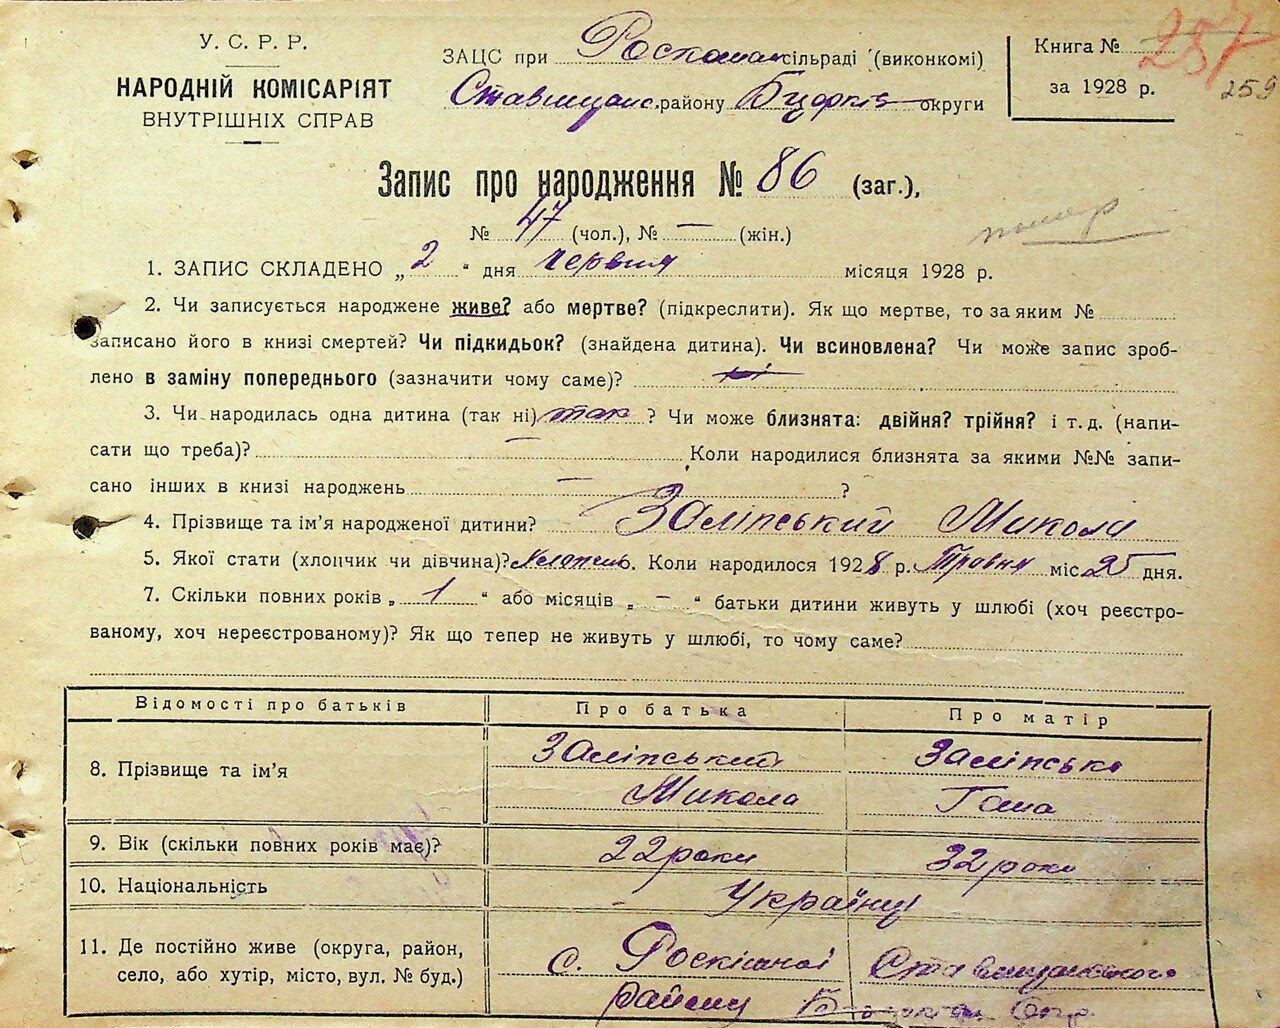 У. С. Р. Р.
НАРОДНІЙ КОМІСАРІЯТ
ВНУТРІШНІХ СПРАВ
ЗАЦС при сільраді (виконкомі)
району округи
Книга № 257
за 1928 р. 259
Запис про народження № 86 (заг.),
№ 47 (чол.), № — (жін.)
помер
1. ЗАПИС СКЛАДЕНО „2“ дня червня місяця 1928 р.
2. Чи записується народжене живе? або мертве? (підкреслити). Як що мертве, то за яким №
записано його в книзі смертей? Чи підкидьок? (знайдена дитина). Чи всиновлена? Чи може запис зроб-
лено в заміну попереднього (зазначити чому саме)?
3. Чи народилась одна дитина (так ні) так ? Чи може близнята: двійня? трійня? і т. д. (напи-
сати що треба)? — Коли народилися близнята за якими №№ запи-
сано інших в книзі народжень — ?
4. Прізвище та ім’я народженої дитини? Заліпський Микола
5. Якої стати (хлопчик чи дівчина)? Хлопчик 6. Коли народилося 1928 р. Травня міс. 25 дня.
7. Скільки повних років „1“ або місяців „—“ батьки дитини живуть у шлюбі (хоч реєстро-
ваному, хоч нереєстрованому)? Як що тепер не живуть у шлюбі, то чому саме?
Відомості про батьків Про батька Про матір
8. Прізвище та ім’я Заліпський Заліпська
Микола Гана
9. Вік (скільки повних років має)? 22 роки 32 роки
10. Національність Українці
11. Де постійно живе (округа, район, с. Ставищанського
село, або хутір, місто, вул. № буд.) району